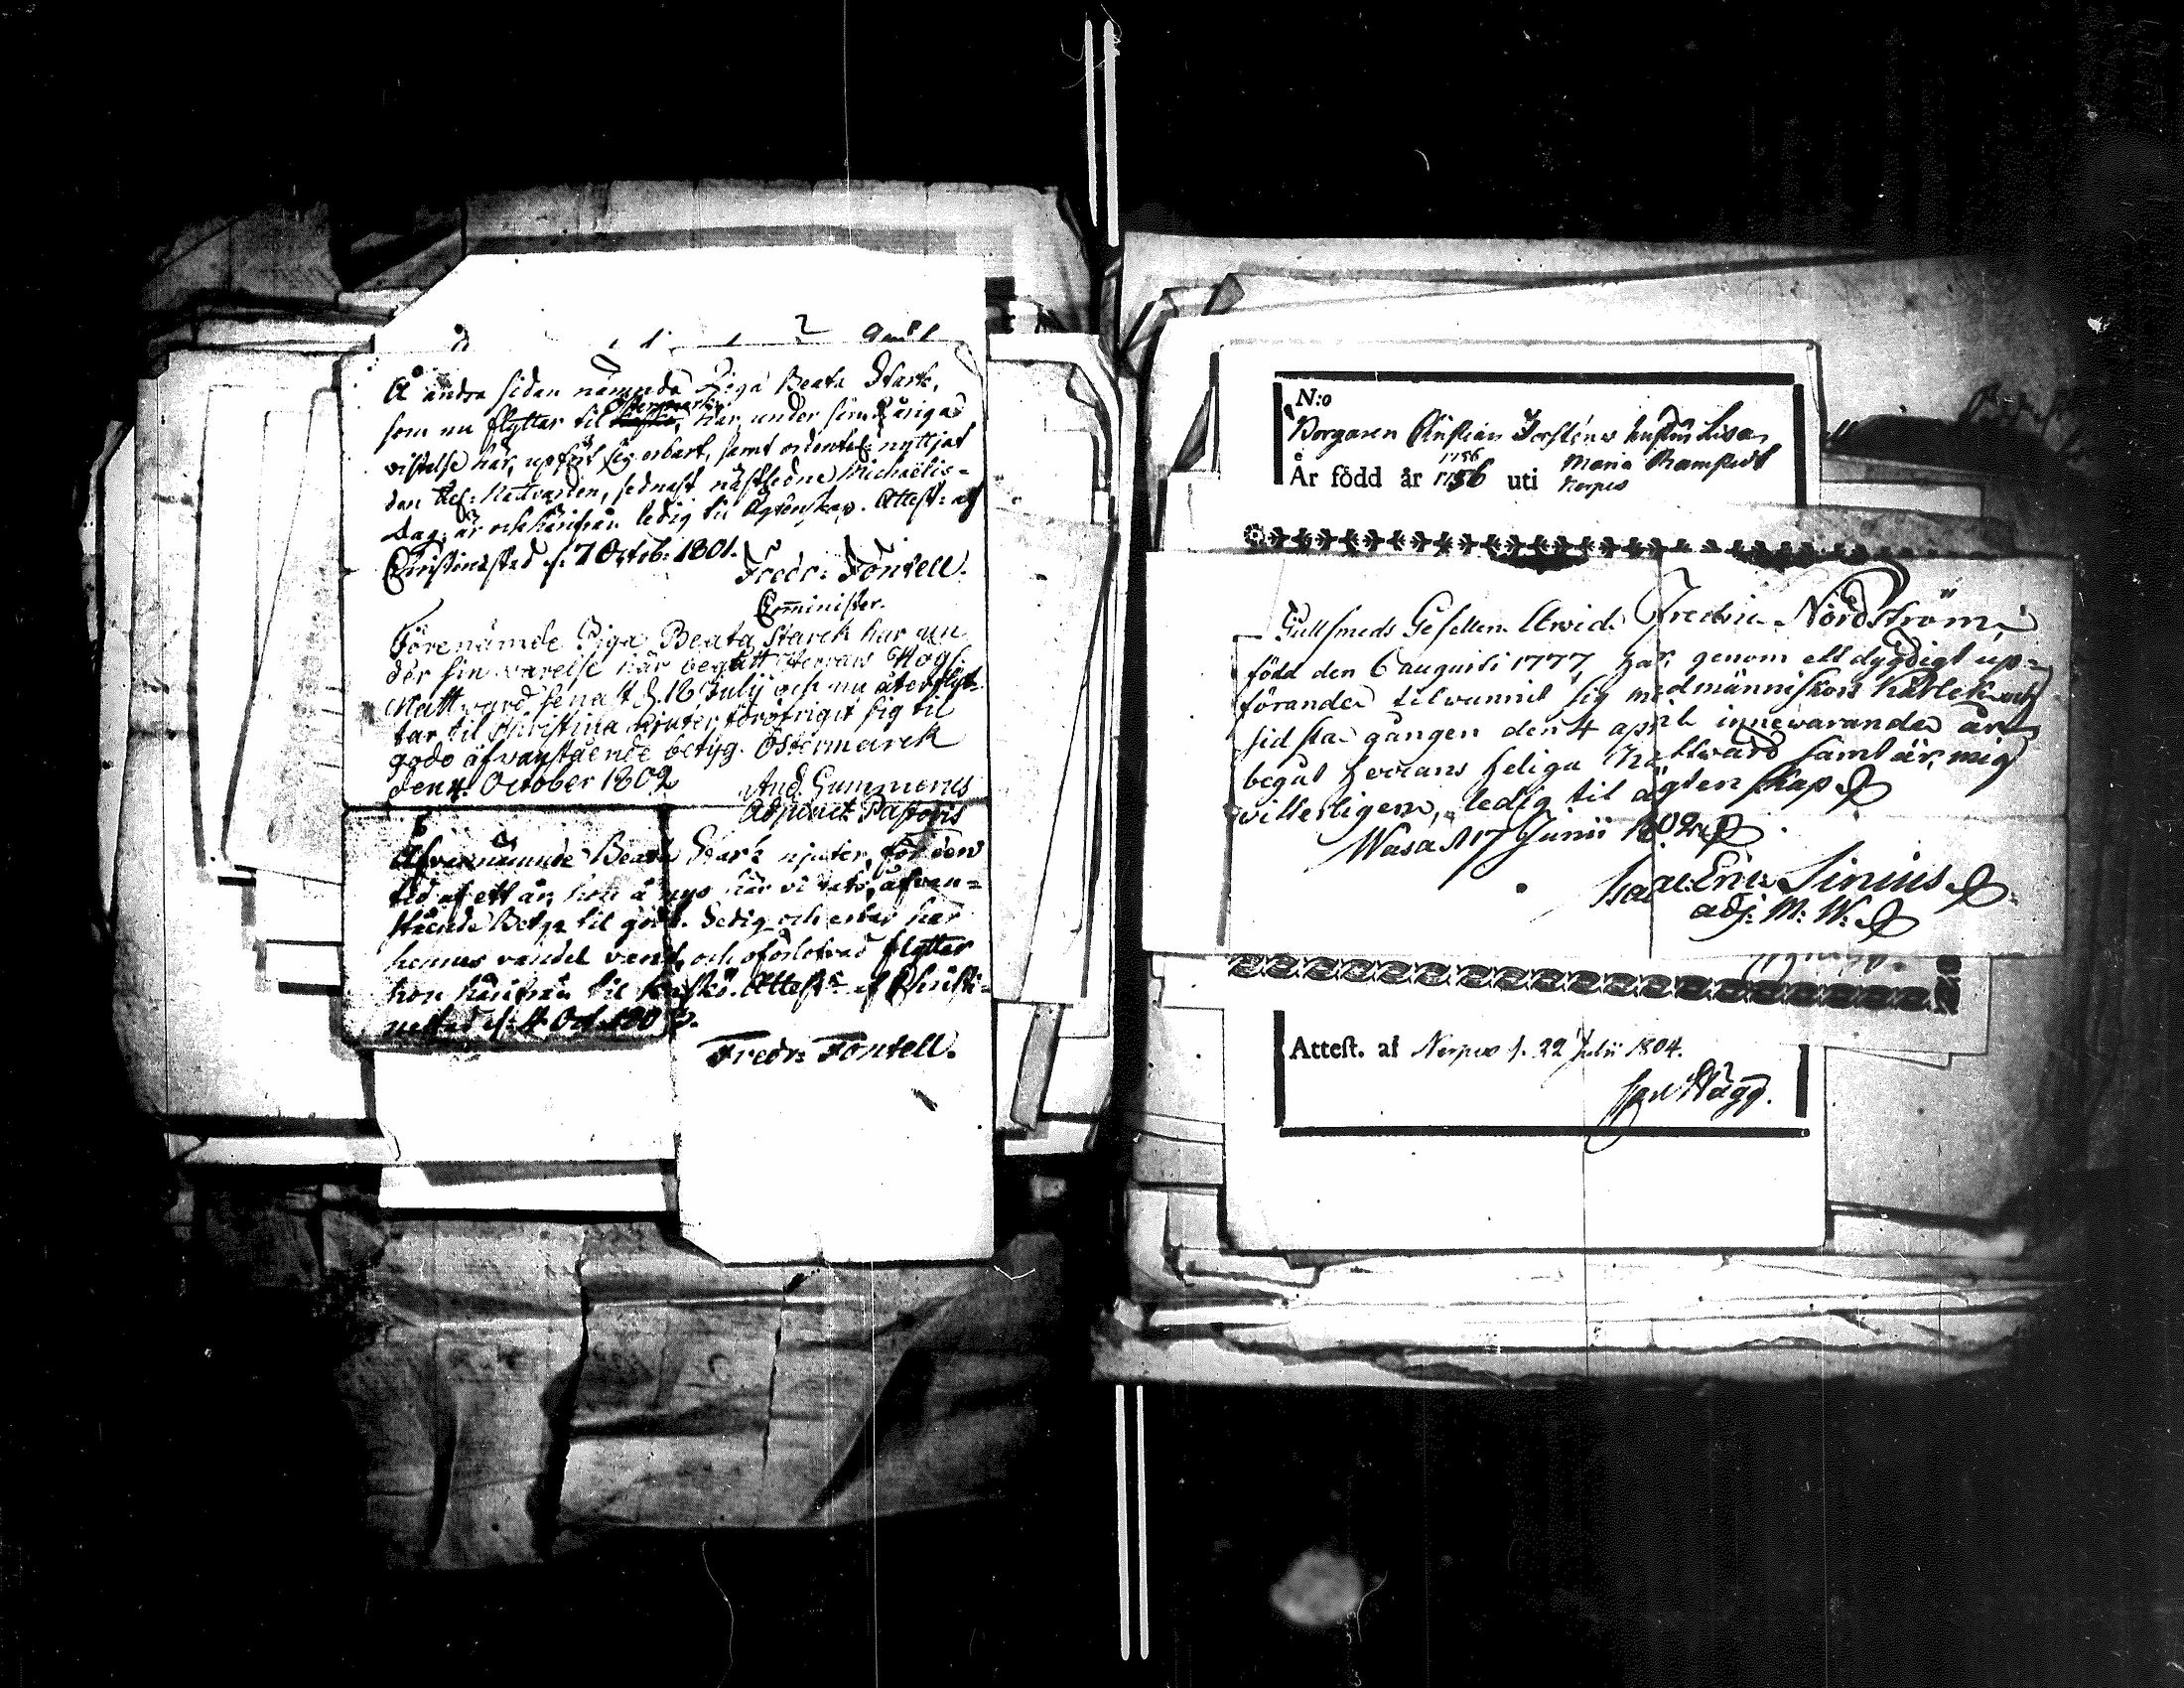 Å andra sidan nämnda Piga Beata Stark,
som nu flyttar til Östermark, har under sin åriga
vistelse här, upfört sig erbart, samt ordentel: nyttjat
den Hel: Nattvarden, sednast nästledne Michaëlis-
dag; är och härifrån ledig til Ägtenskap. Attest: af
Christinestad d: 7 Octob: 1801.
Fredr: Fontell.
Comminister.
Förenämde Piga Beata Starck har un
der sin varelse här begått Herrans Högh
Nattvard senast d. 18 Julij och nu återflyt-
tar til Christina niuter föröfrigit sig til
godo åfvanstående betyg. Östermarck
den 4 October 1802
And. Gummerus
Adjunct: Pastoris
Ofvannämnde Beata Stark njuter, för den
tid af ett år, hon å nyo här vistats, åfvan-
stående Betyg til godo. Sedig och erbar har
hennes vandel varit, och oförlofvad flyttar
hon härifrån til Kaskö. Attest: af Christi-
nestad d: 4 Oct. 180
Fredr: Fontell.
N:o
Borgaren Christian Forsténs hustru Lisa
Maria Ramstedt
1756
År född år 1756 uti Nerpes
Gullsmeds Gesellen Arvid Fredric Nordström,
född den 6 augusti 1777, har, genom ett dygdigt up-
förande tilvunnit sig medmänniskors kärlek och
sidsta gången den 4 april innewarande år
begåt Herrans heliga Nattward samt är, mig
vitterligen, ledig til ägtenskap
Wasa d 17 Junii 1802
Isaac Eric Sinius
adj. M: W:
Attest. af Nerpes d. 22 Julii 1804.
Hägg.